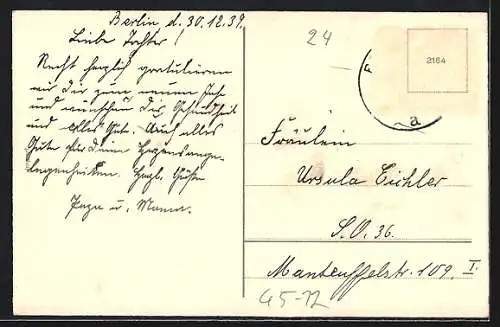 Berlin d. 30.12.39.
Liebe Tochter!
Recht herzlich gratulieren
wir Dir zum neuen Jahr
und wünschen Dir Gesundheit
und Alles Gute. Auch alles
Gute für Deine Herzensange-
legenheiten. Herzl. Grüße
Papa u. Mama.
24
2164
a
Fräulein
Ursula Eichler
S.O. 36.
Manteuffelstr. 109. I.
45-12